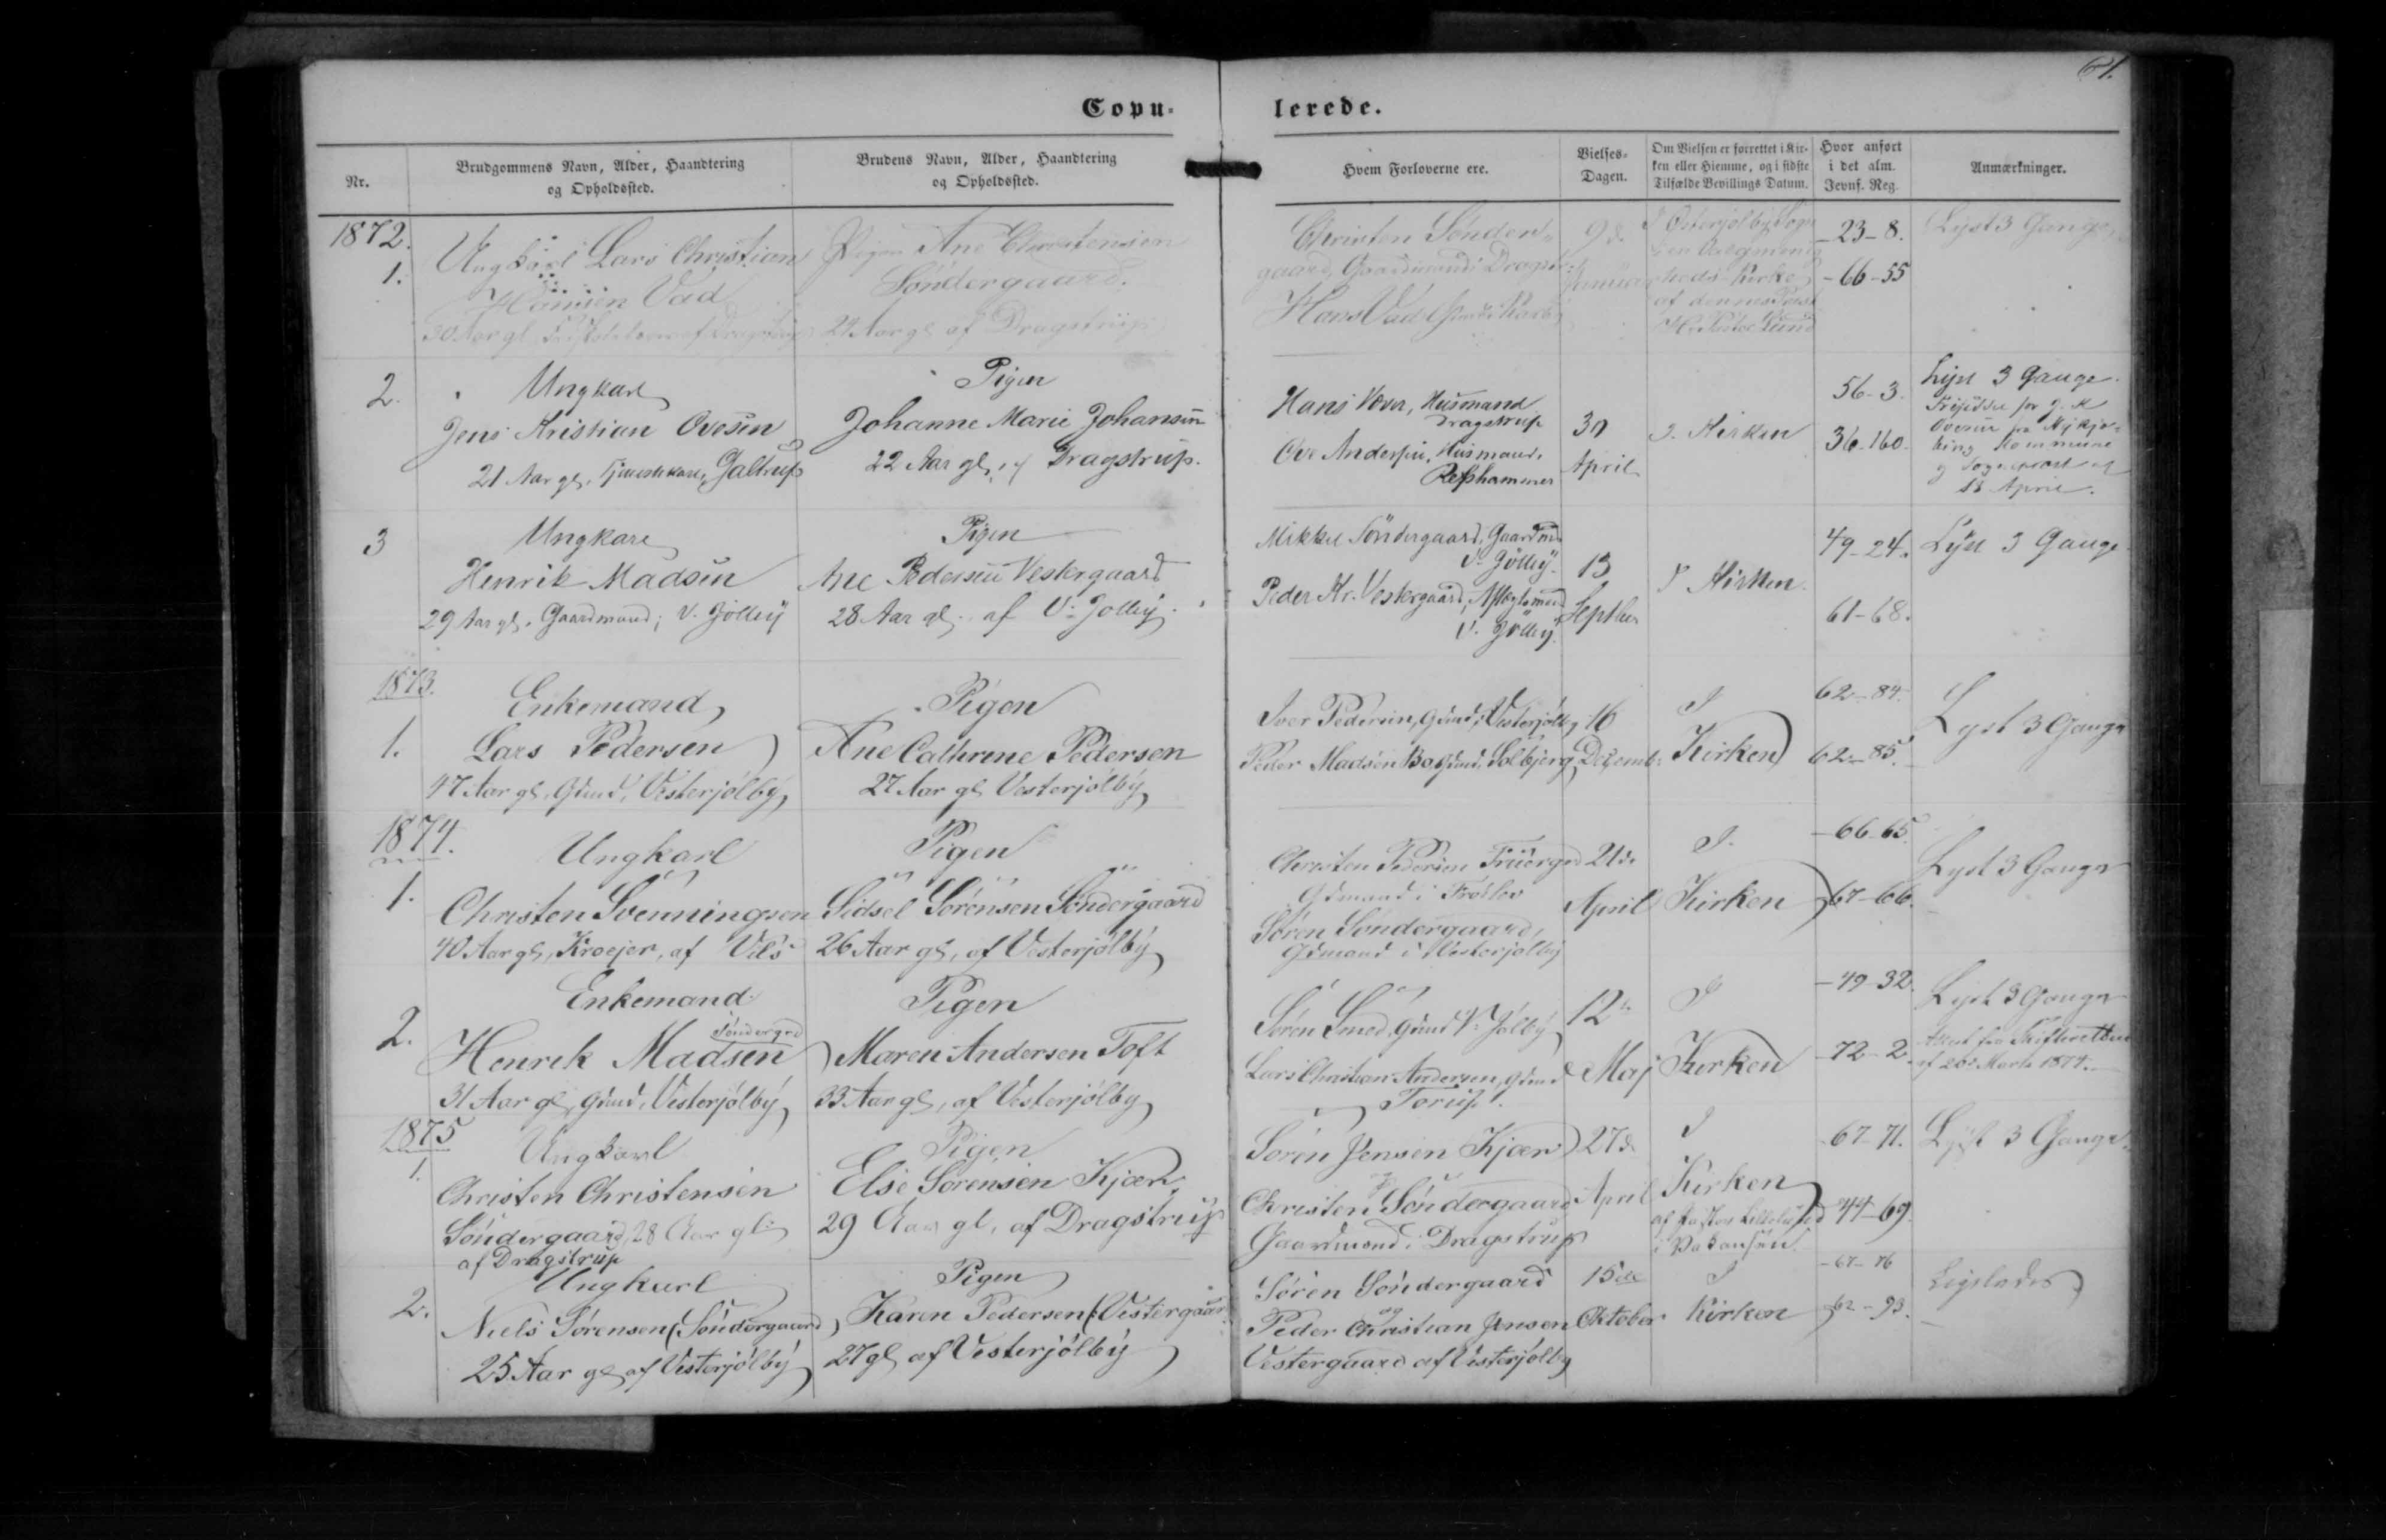 61.
Copu-
lerede.
Nr.
Brudgommens Navn, Alder, Haandtering
og Opholdssted.
Brudens Navn, Alder, Haandtering
og Opholdssted.
Hvem Forloverne ere.
Vielses-
Dagen.
Om Vielsen er forrettet i Kir-
ken eller Hiemme, og i sidste
Tilfælde Bevillings Datum.
Hvor anført
i det alm.
Jevnf. Reg.
Anmærkninger.
1872.
1.
Ungkarl Lars Christian
Hansen Vad
30 Aar gl. af Dragstrup
Pigen Ane Christensen
Søndergaard.
24 Aar gl. af Dragstrup
Christen Sønder-
gaard, Gaardmand i Dragstr:
Hans Vad
9d.
Januar
I Østerjølby Sogn
Valgmenig
heds Kirke
af dennes Præst
Hr. Pastor Lund
-23-8.
-66-55
Lyst 3 Gange,
2.
Ungkarl
Jens Kristian Ovesen
21 Aar gl. Tjenestekarl, Galtrup
Pigen
Johanne Marie Johansen
22 Aar gl. af Dragstrup.
Hans Væver, Husmand
Dragstrup
Ove Andersen, Husmand,
Refshammer
30
April
I. Kirken
56-3.
36-160.
Lyst 3 Gange.
for J. K
Ovesen fra Nykjø-
bing Kommune
og Sognepræst af
18 April.
3
Ungkarl
Henrik Madsen
29 Aar gl. Gaardmand, V. Jølby
Pigen
Ane Pedersen Vestergaard
28 Aar gl. af V. Jølby
Mikkel Søndergaard, Gaardmd
V. Jølby
Peder Kr. Vestergaard, Aftægtsmand
V. Jølby
13
Septbr
I Kirken
49-24.
61-68.
Lyst 3 Gange
1873.
1.
Enkemand
Lars Pedersen
47 Aar gl. Gmd, Vesterjølby
Pigen
Ane Cathrine Pedersen
27 Aar gl. Vesterjølby
Iver Pedersen, Gmd, Vesterjølby
Peder Madsen Bo Gmd, Solbjerg
16
Decemb:
I
Kirken
62-84.
62-85.
Lyst 3 Gange
1874.
1.
Ungkarl
Christen Svenningsen
40 Aar gl, Kroejer, af Vils
Pigen
Sidsel Sørensen Søndergaard
26 Aar gl, af Vesterjølby
Christen Pedersen Fruergrd
Gdmand i Frøslev
Søren Søndergaard,
Gdmand i Vesterjølby
21d.
April
I.
Kirken
-66-65.
67-66.
Lyst 3 Gange
2.
Enkemand
Søndergrd
Henrik Madsen
31 Aar gl, Gmd, Vesterjølby
Pigen
Maren Andersen Toft
33 Aar gl, af Vesterjølby
Søren Smed, Gmd V. Jølby
Lars Christian Andersen, Gmd
Torup.
12
Maj
I
Kirken
-49-32.
-72-2.
Lyst 3 Gange
Attest fra Skifteretten
af 20d Marts 1874.
1875
1.
Ungkarl
Christen Christensen
Søndergaard, 28 Aar gl.
af Dragstrup
Pigen
Else Sørensen Kjær
29 Aar gl. af Dragstrup
Søren Jensen Kjær
og
Christen Søndergaard
Gaardmænd i Dragstrup
27d.
April
I
Kirken
af Pastor
i Vakansen.
-67-71.
44-69.
Lyst 3 Gange.
2.
Ungkarl
Niels Sørensen (Søndergaard)
25 Aar gl. af Vesterjølby
Pigen
Karen Pedersen (Vestergaard
27 gl. af Vesterjølby
Søren Søndergaard
og
Peder Christian Jensen
Vestergaard af Vesterjølby
15de
Oktober
I
Kirken
-67-76
62-93.
Ligeledes